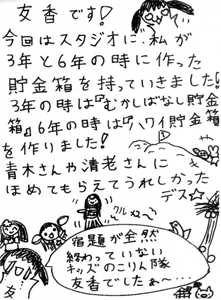 友香です!
今回はスタジオに、私が
3年と6年の時に作った
貯金箱を持っていきました!
3年の時は『むかしばなし貯金
箱』6年の時は『ハワイ貯金箱』
を作りました!
青木さんや清老さんに
ほめてもらえてうれしかった
デス☆
クルメラ〜
宿題が全然
終わっていない
キッズのこりん隊
友香でしたぁ〜…
友